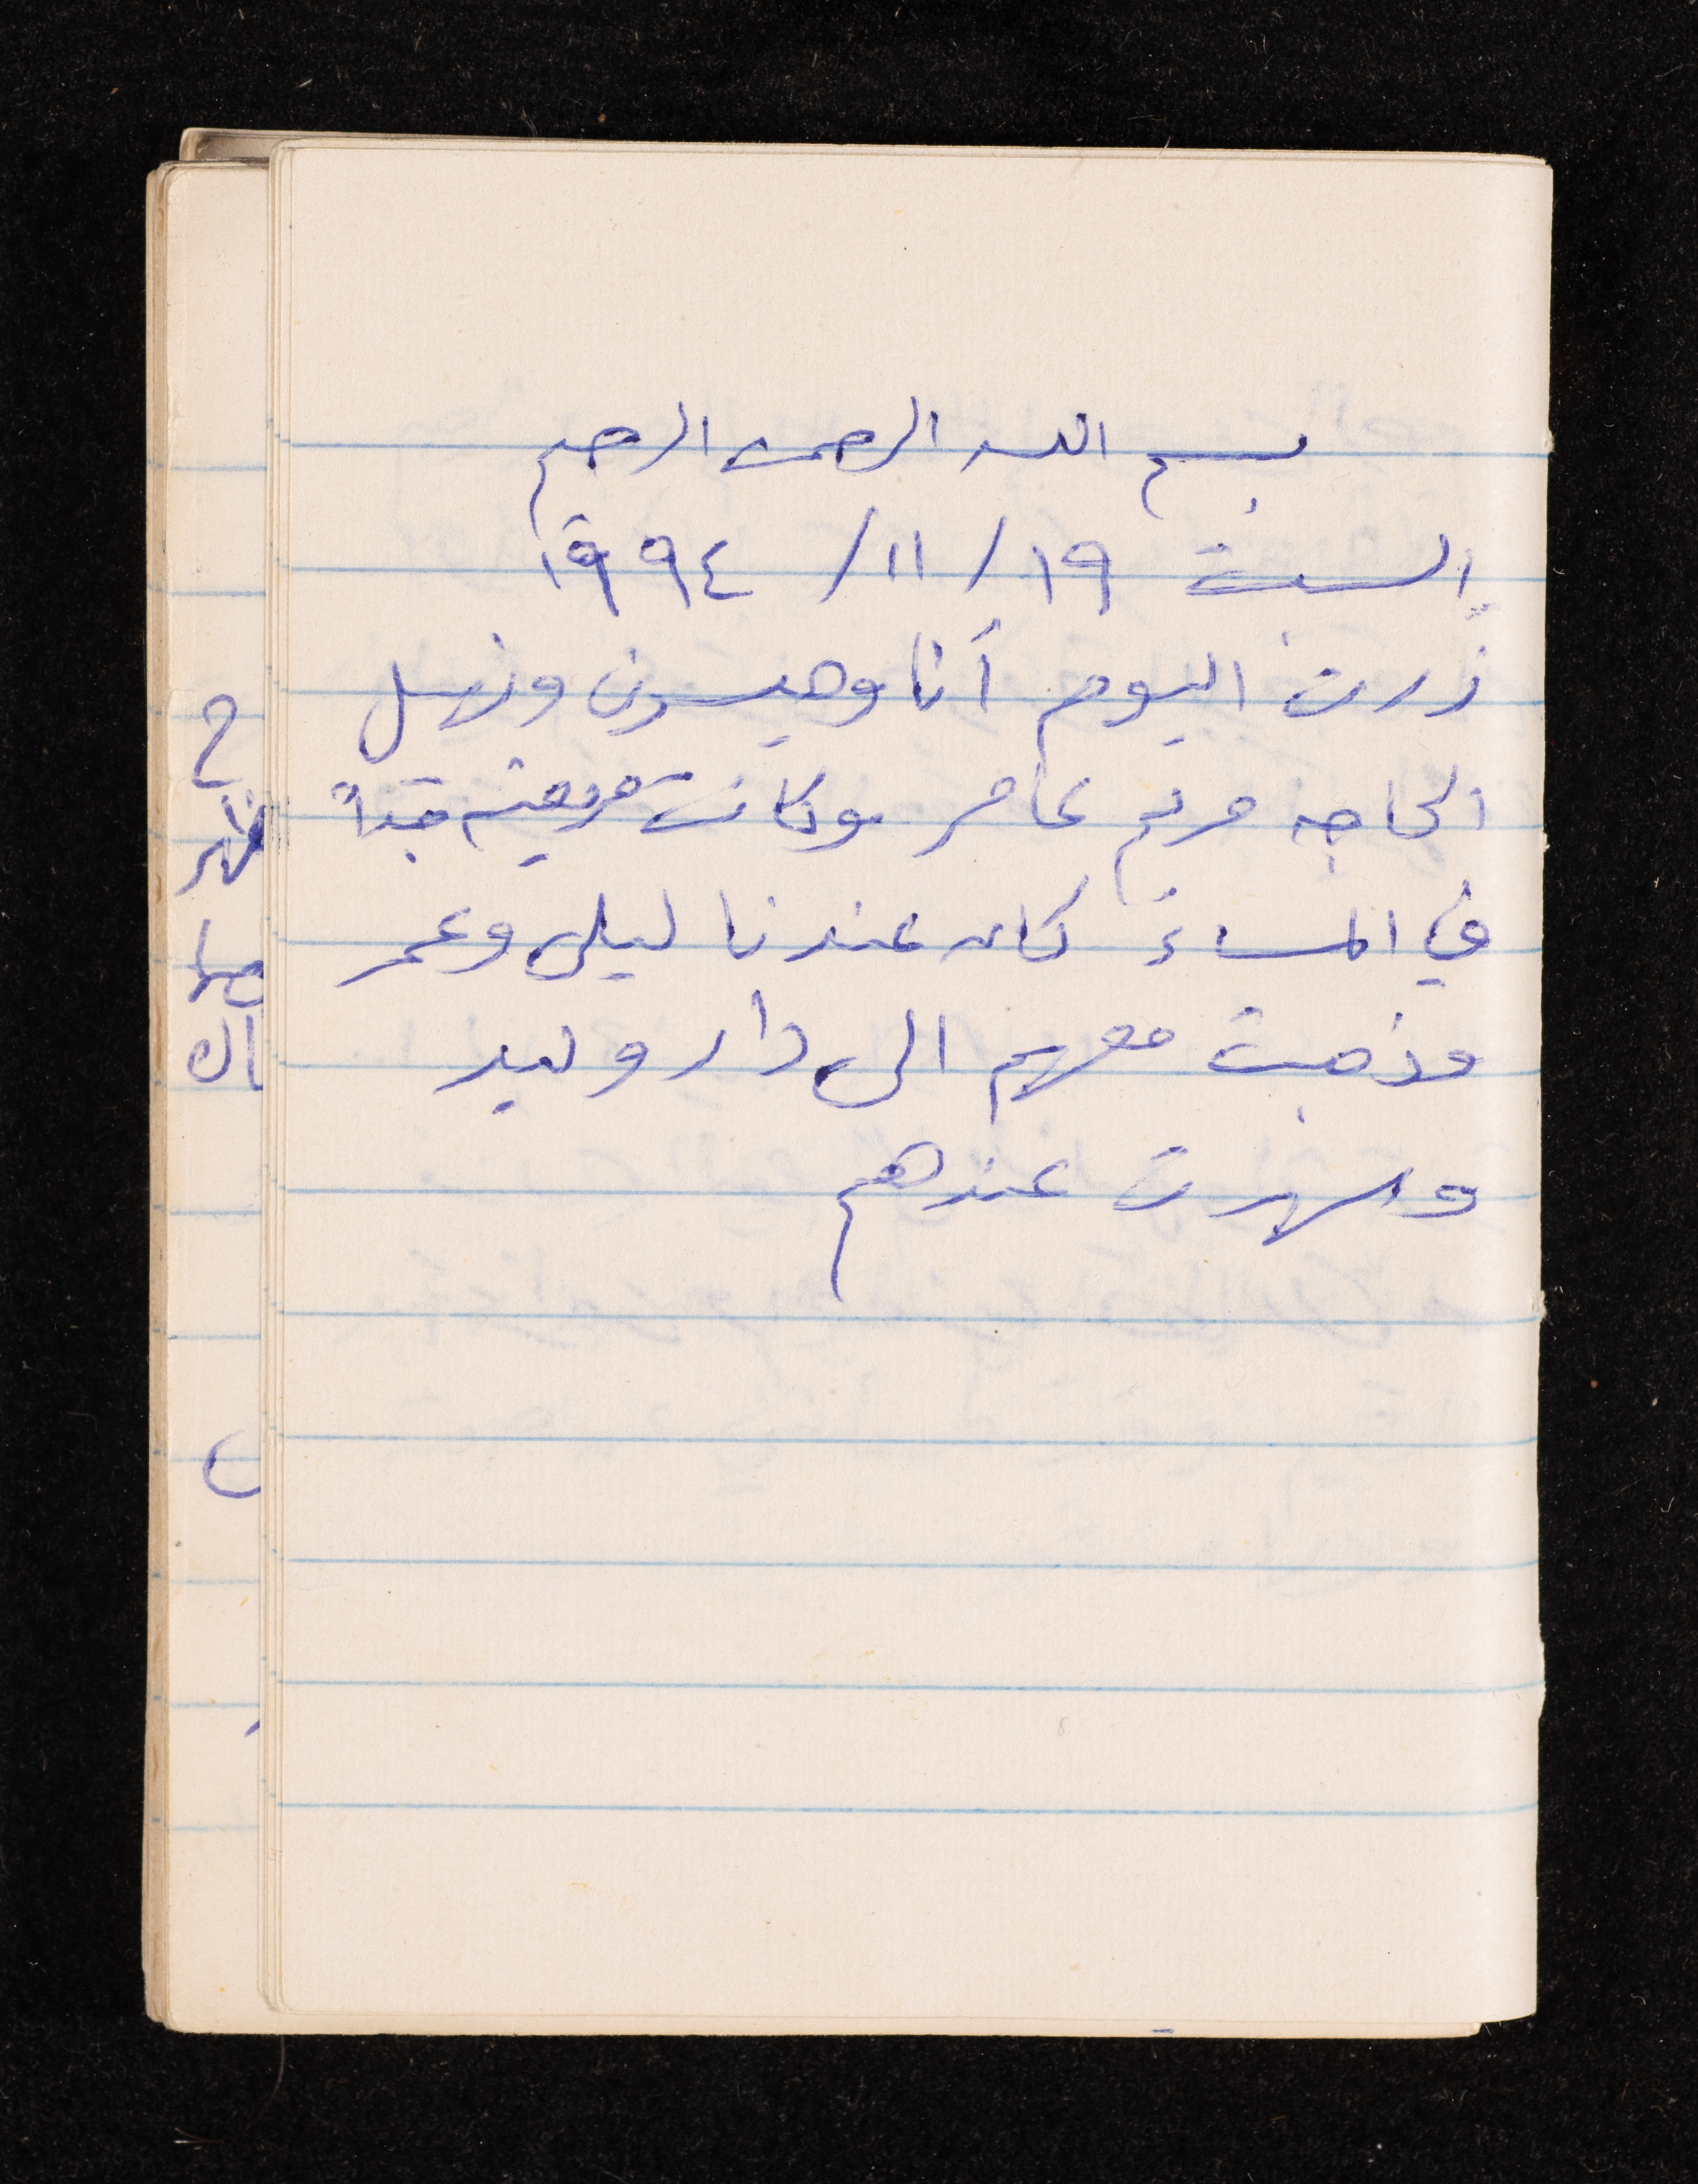 بسم الله الرحمن الرحيم
السبت ١٩/ ١١/ ١٩٩٤
زرت اليوم أنا وميسون ونهيل
الحاجه مريم عامر وكانت مريضه جداً
في المساء كان عندنا ليلى وعمر
وذهبت معهم الى دار وليد
وسهرت عندهم